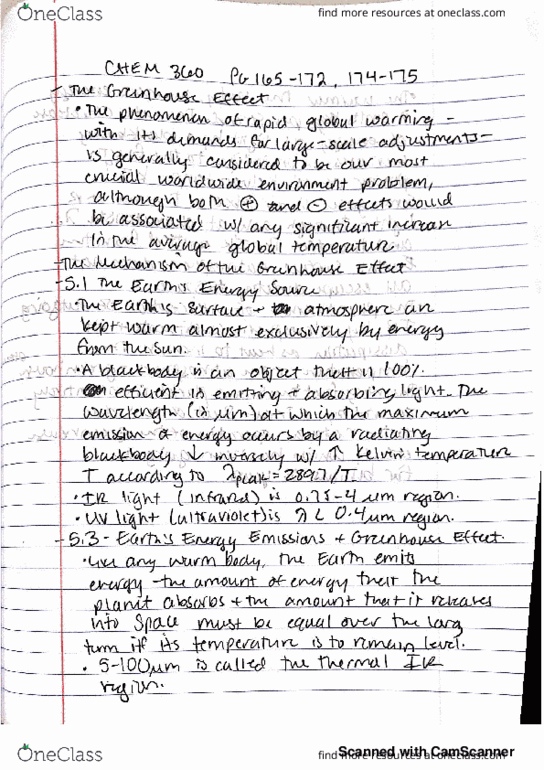 OneClass
find more resources at oneclass.com
CHEM 360 Pg 165-172, 174-175
- The Greenhouse Effect
• The phenomenon of rapid, global warming -
with its demands for large-scale adjustments-
is generally considered to be our most
crucial worldwide environment problem,
although both ⊕ and ⊖ effects would
be associated w/ any significant increase
in the average global temperature
- The Mechanism of the Greenhouse Effect
- 5.1 The Earth's Energy Source
• The Earth's surface + atmosphere are
kept warm almost exclusively by energy
from the sun.
• A blackbody is an object that is 100%
efficient in emitting + absorbing light. The
wavelength (in μm) at which the maximum
emission of energy occurs by a radiating
blackbody ↓ inversely w/ ↑ Kelvin temperature
T according to λpeak = 2897/T.
• IR light (infrared) is 0.75-4 μm region.
• UV light (ultraviolet) is λ < 0.4 μm region.
- 5.3 - Earth's Energy Emissions + Greenhouse Effect.
• Like any warm body, the Earth emits
energy - the amount of energy that the
planet absorbs + the amount that it releases
into space must be equal over the long
term if its temperature is to remain level.
• 5-100 μm is called the thermal IR
region.
OneClass
find more resources at oneclass.com
Scanned with CamScanner